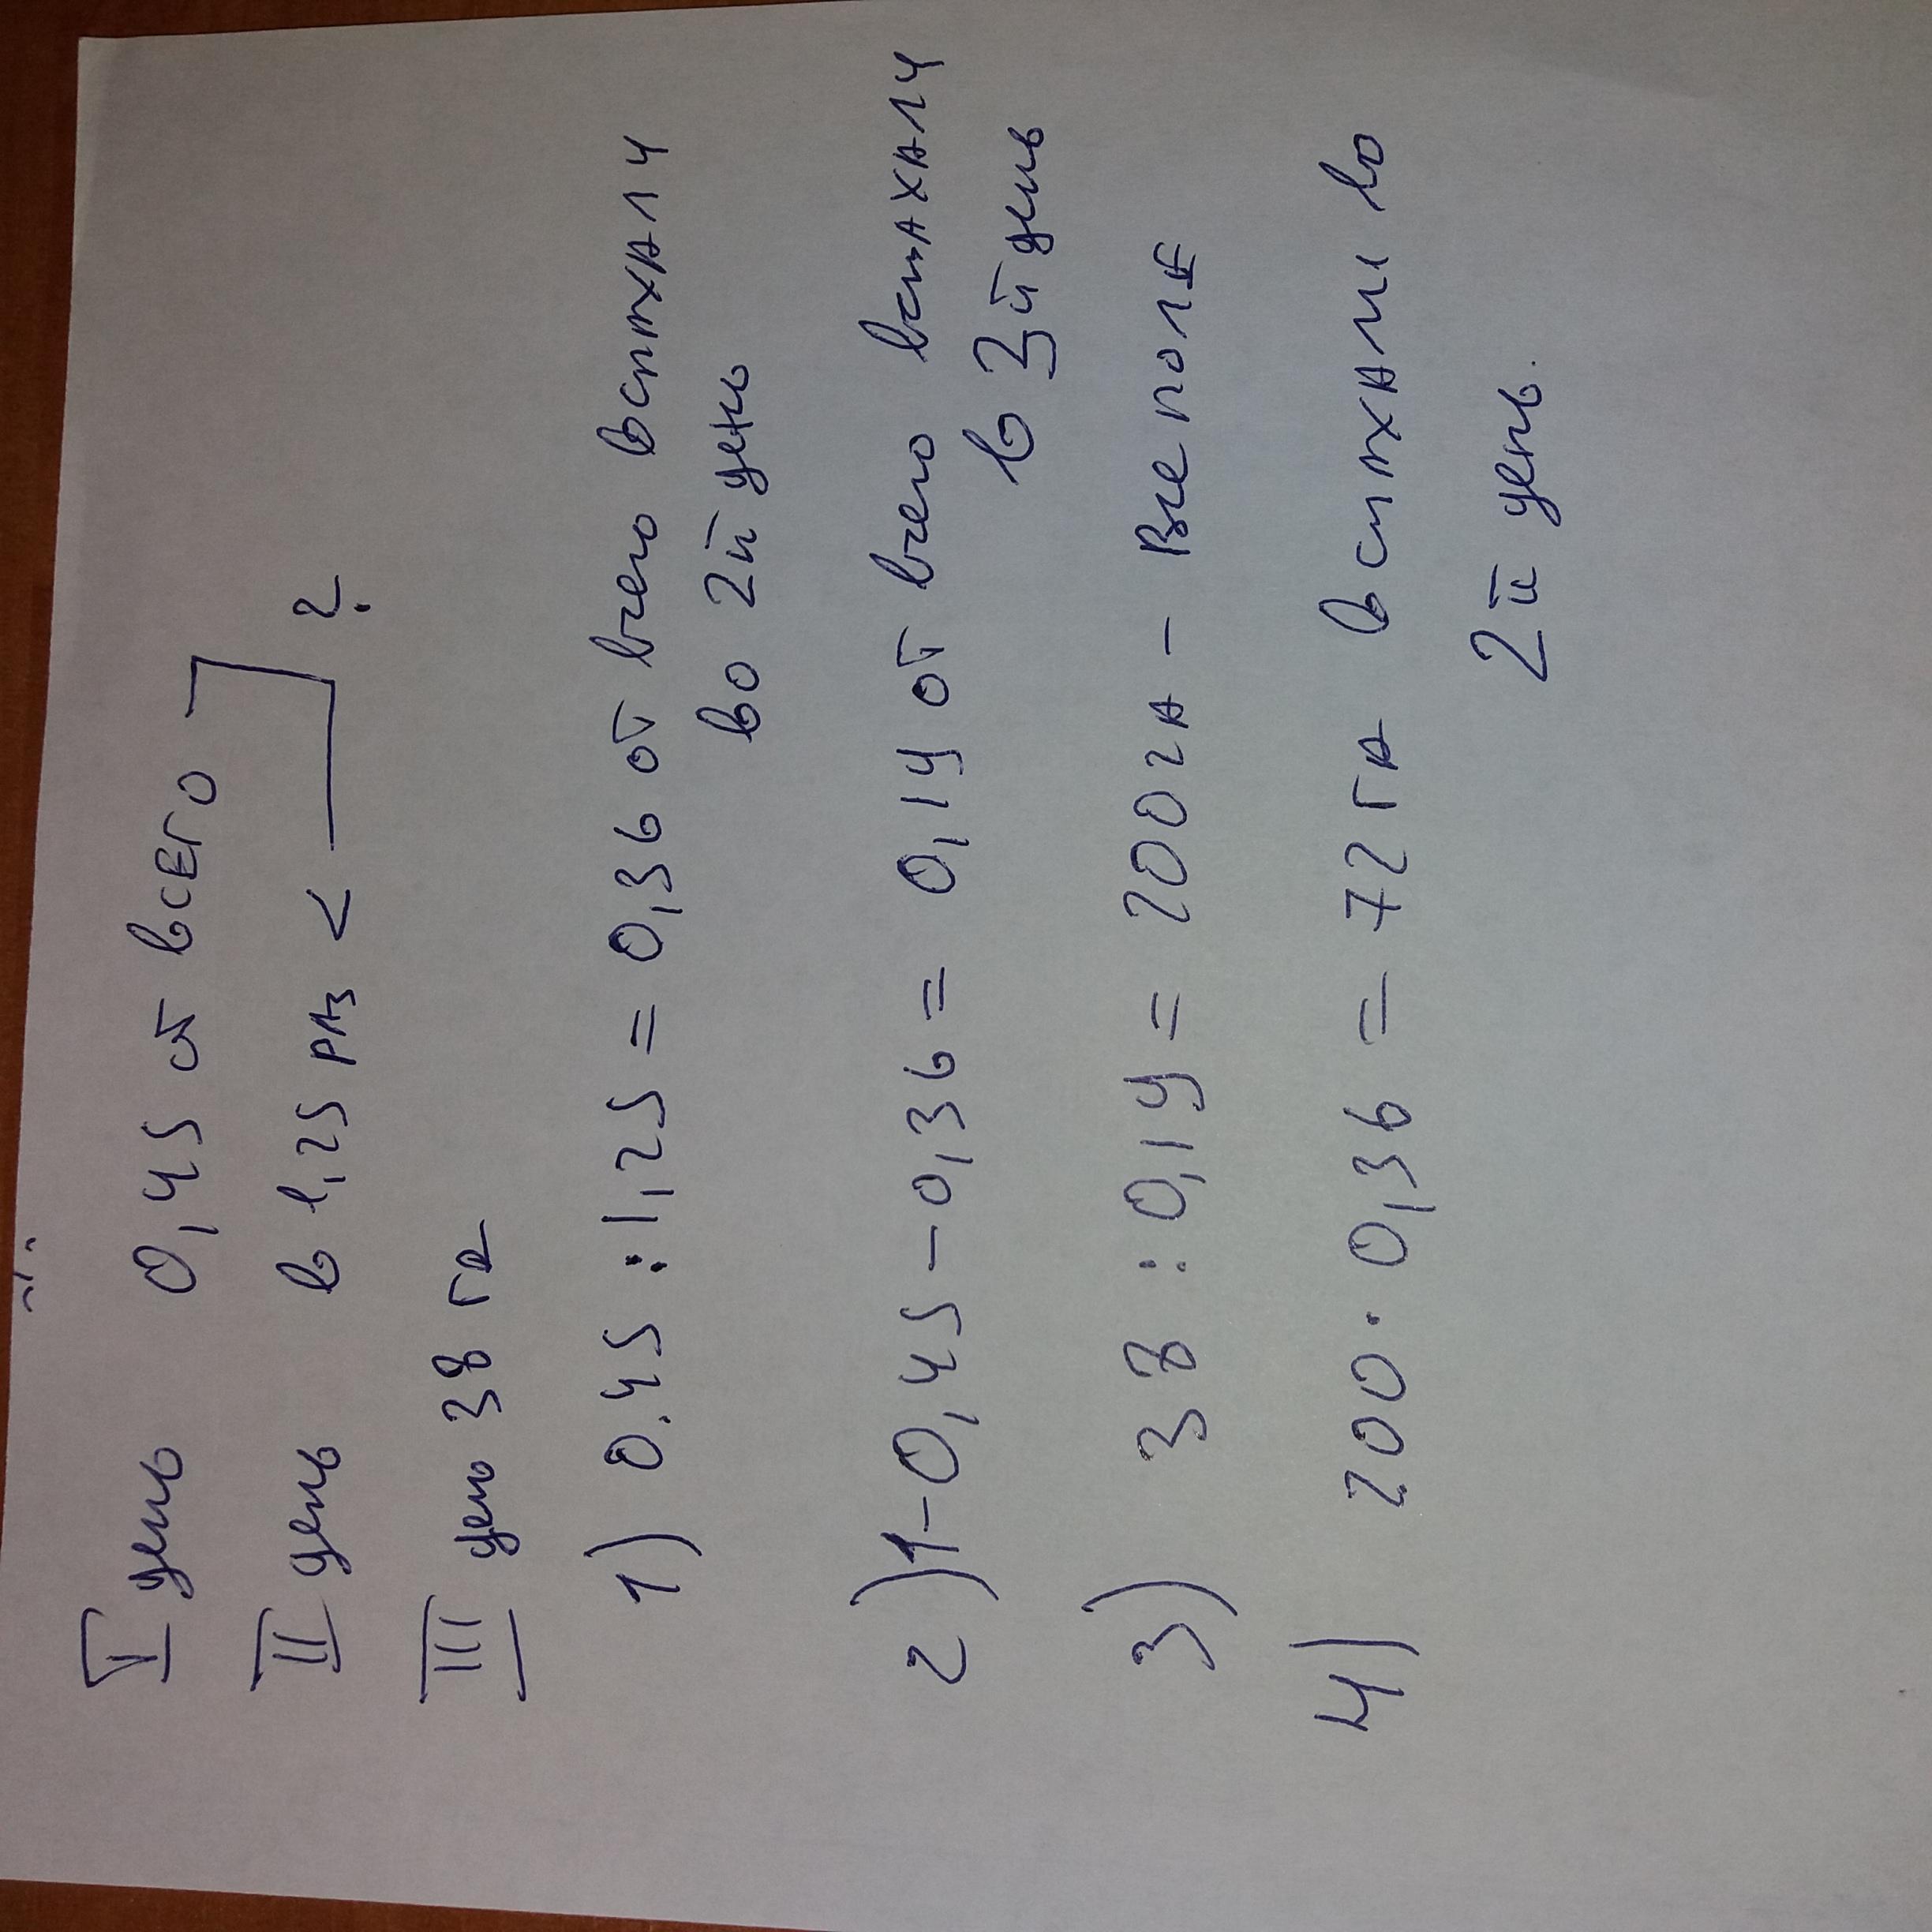 I день 0,45 от всего
II день в 1,25 раз < ?
III день 38 га
1) 0,45 : 1,25 = 0,36 от всего вспахали
во 2й день
2) 1-0,45-0,36 = 0,19 от всего вспахали
в 3й день
3) 38 : 0,19 = 200га - все поле
4) 200 · 0,36 = 72 га вспахали во
2й день.